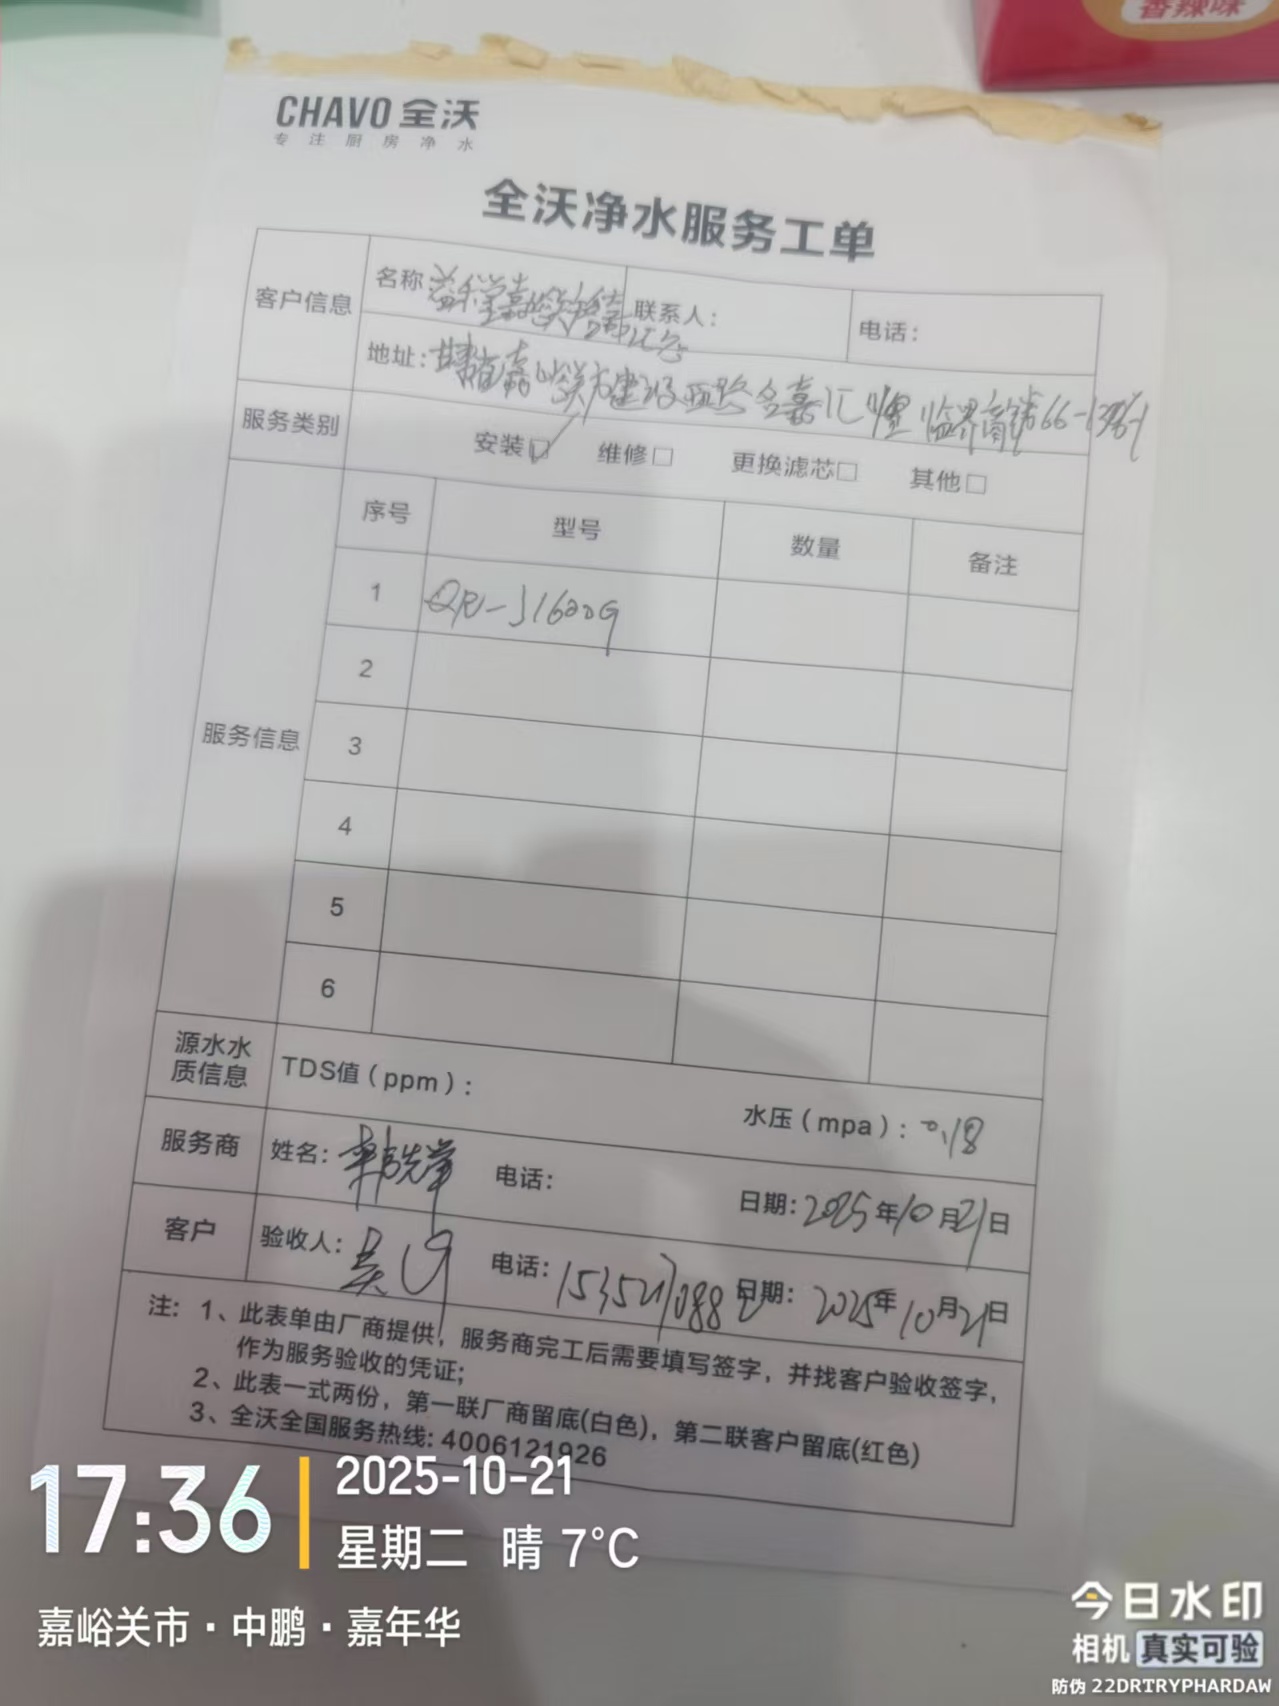 香辣味
CHAVO 全沃
专注厨房净水
全沃净水服务工单
客户信息 名称 益禾堂嘉峪关 联系人： 电话：
地址：甘肃省嘉峪关市建设西路 嘉汇 临界商铺66-
服务类别 安装☑ 维修□ 更换滤芯□ 其他□
服务信息 序号 型号 数量 备注
1 QR-J1600G
2
3
4
5
6
源水水质信息 TDS值（ppm）： 水压（mpa）：0.18
服务商 姓名：韩先 电话： 日期：2025年10月21日
客户 验收人：吴 电话：1535217088 日期：2025年10月21日
注：1、此表单由厂商提供，服务商完工后需要填写签字，并找客户验收签字，
作为服务验收的凭证；
2、此表一式两份，第一联厂商留底(白色)，第二联客户留底(红色)
3、全沃全国服务热线：4006121926
17:36
2025-10-21
星期二 晴 7°C
嘉峪关市·中鹏·嘉年华
今日水印
相机 真实可验
防伪 22DRTRYPHARDAW